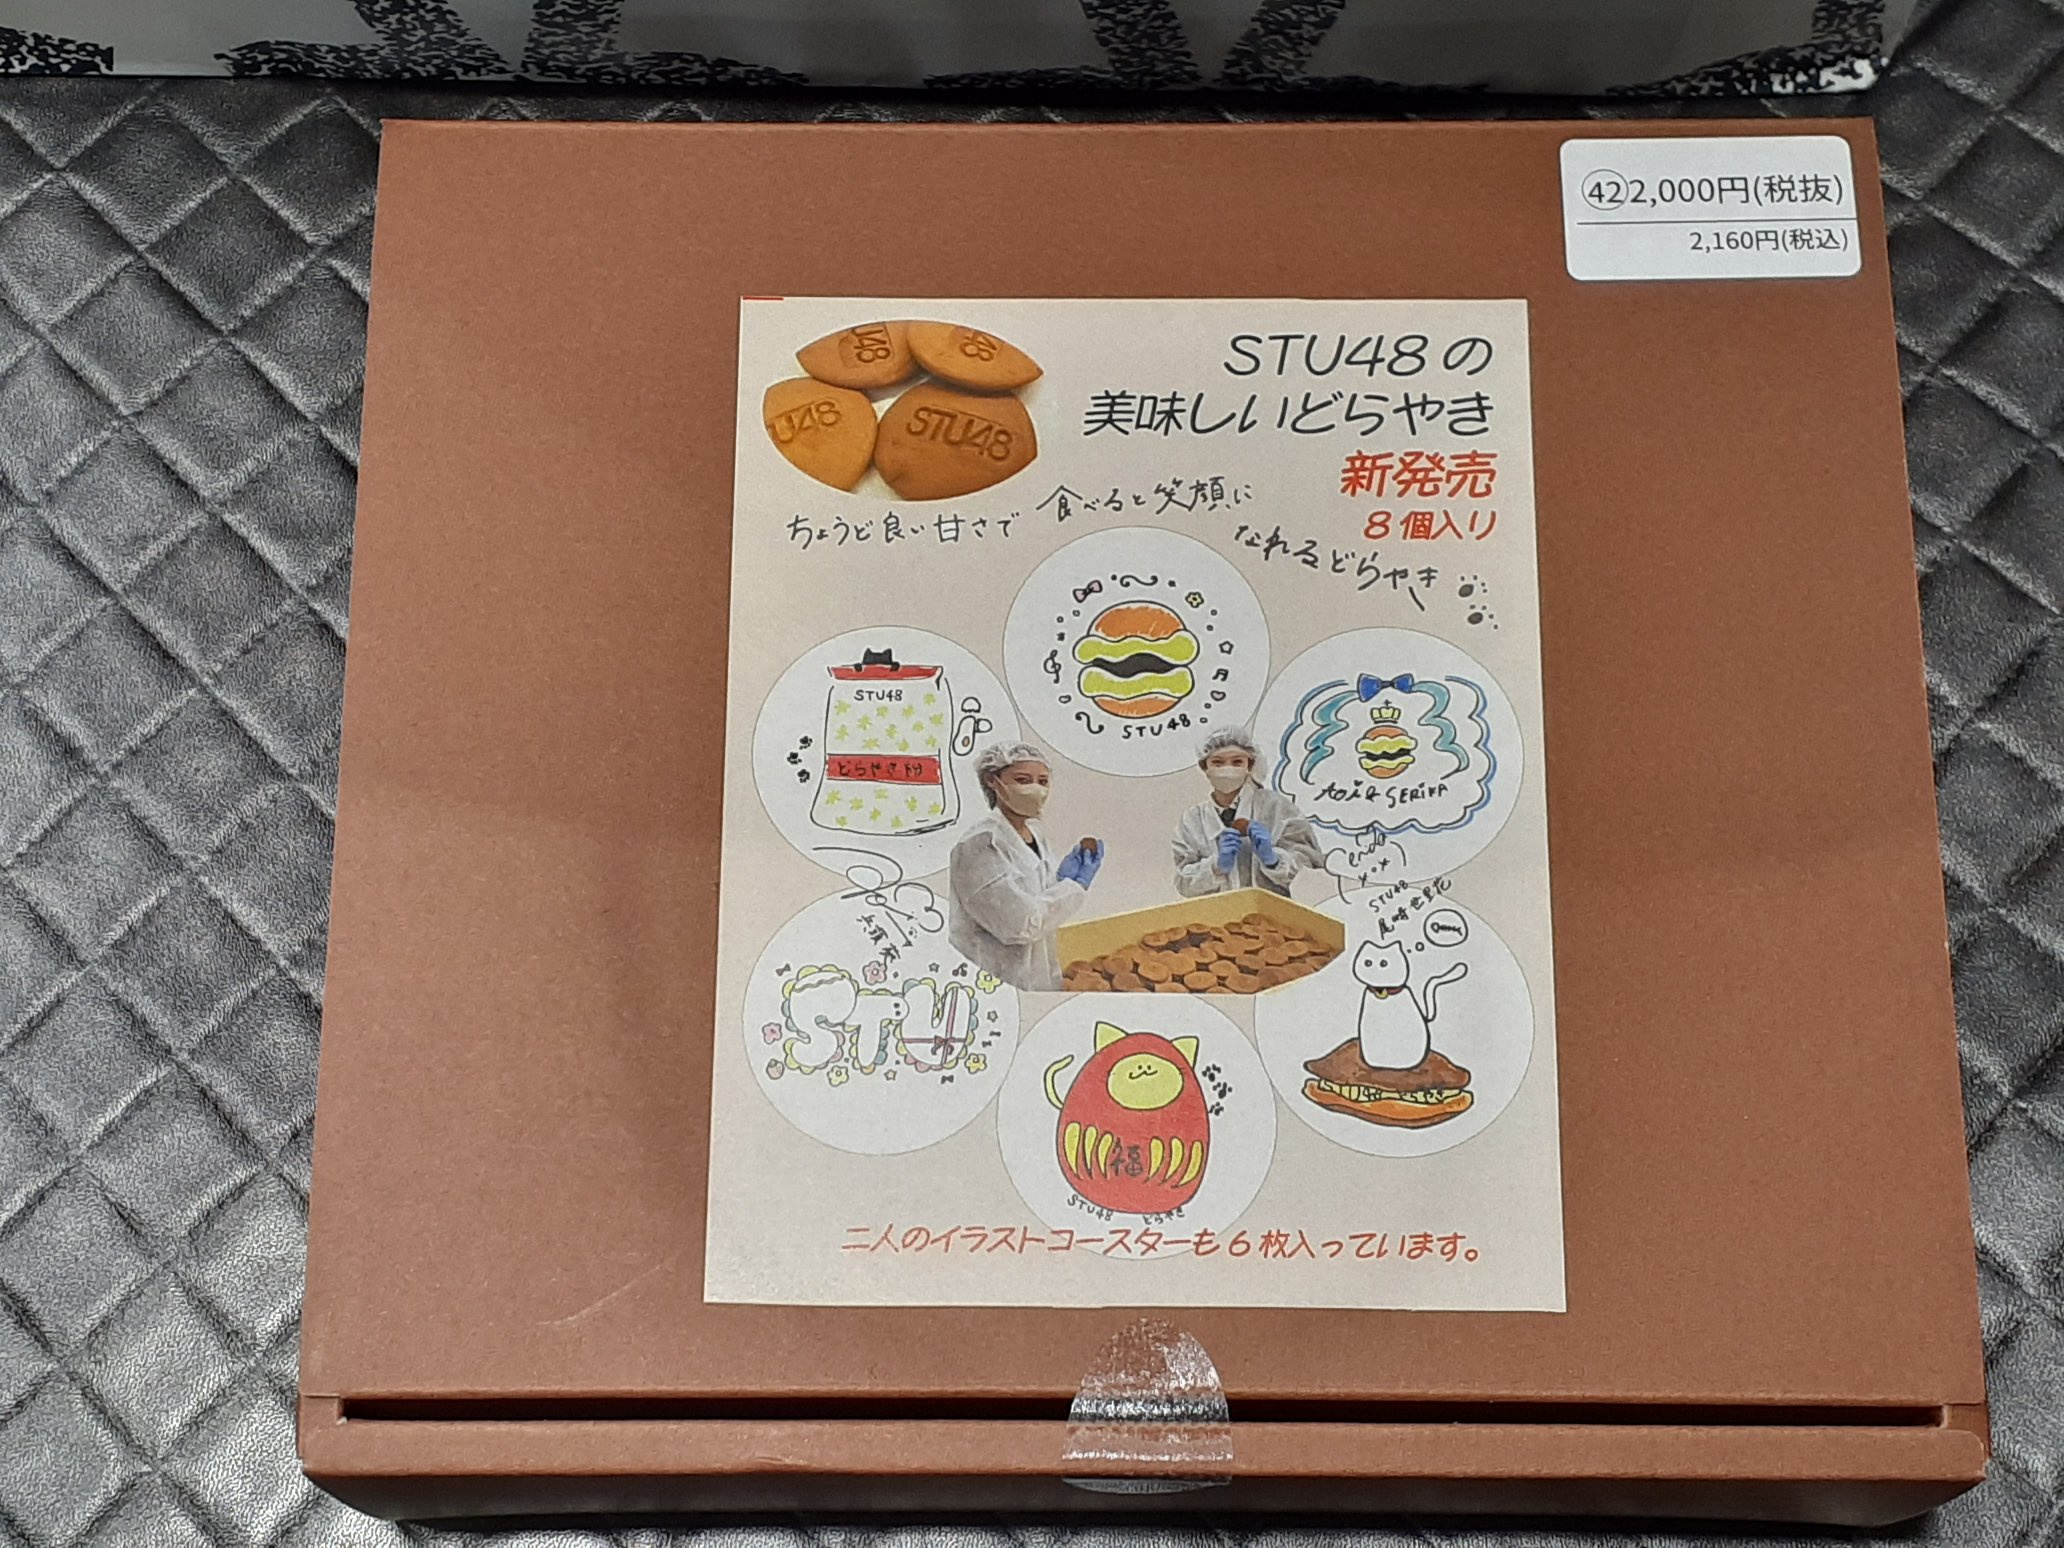 ㊷2,000円(税抜)
2,160円(税込)
STU48の
美味しいどらやき
新発売
8個入り
ちょうど良い甘さで
食べると笑顔に
なれるどらやき
U48
48
U48
STU48
STU48
どらやき粉
STU48
AOi & SERiKA
endo
STU48
尾崎世里花
兵頭葵
STU
48 どらやき
福
STU48 どらやき
二人のイラストコースターも6枚入っています。